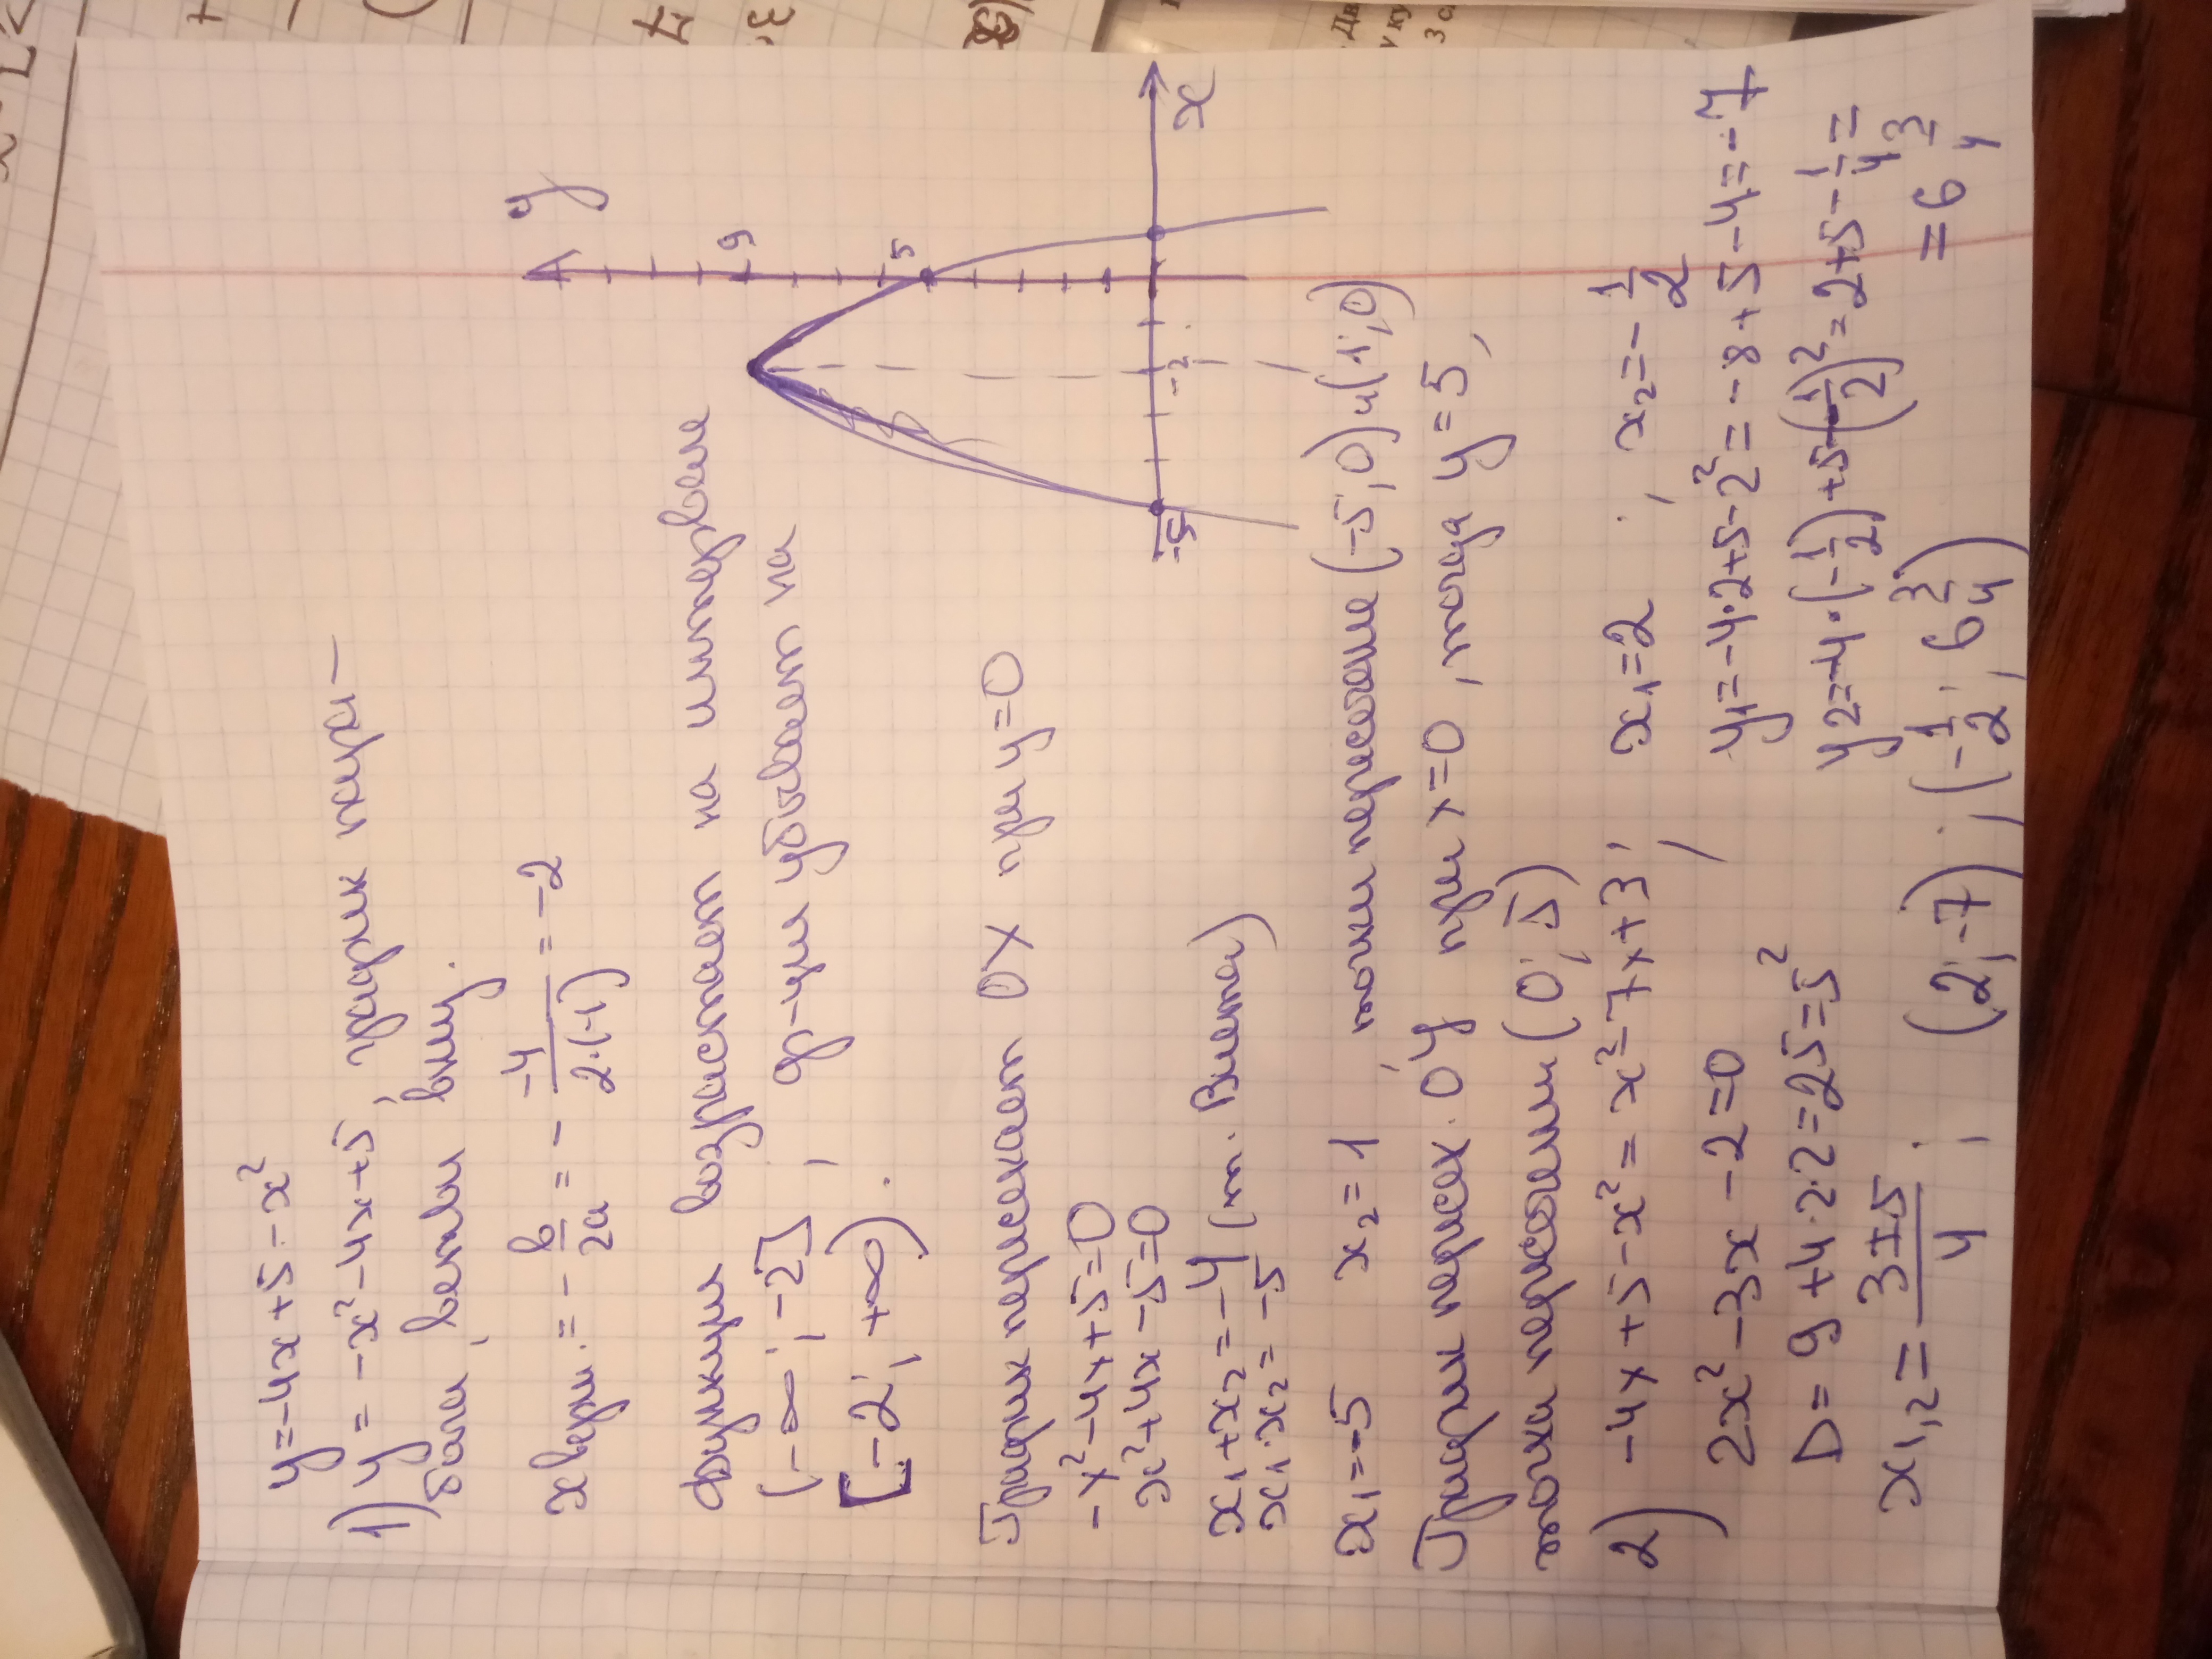 y=-4x+5-x²
1) y=-x²-4x+5, график пара-
бола, ветви вниз.
x верш. = -b/2a = - -4/2·(-1) = -2
Функция возрастает на интервале
(-∞; -2], ф-ция убывает на
[-2; +∞).
y
9
5
-5
-2
x
График пересекает OX при y=0
-x²-4x+5=0
x²+4x-5=0
x1+x2=-4 (т. Виета)
x1·x2=-5
x1=-5 x2=1, точки пересечение (-5;0) и (1;0)
График пересек. OY при x=0, тогда y=5,
точка пересечения (0; 5)
2) -4x+5-x²=x²-7x+3; x1=2; x2=-1/2
2x²-3x-2=0, y1=-4·2+5-2²=-8+5-4=-7
D=9+4·2·2=25=5² y2=-4·(-1/2)+5-(-1/2)²=2+5-1/4=
x1,2=3±5/4; (2;-7); (-1/2; 6 3/4) =6 3/4